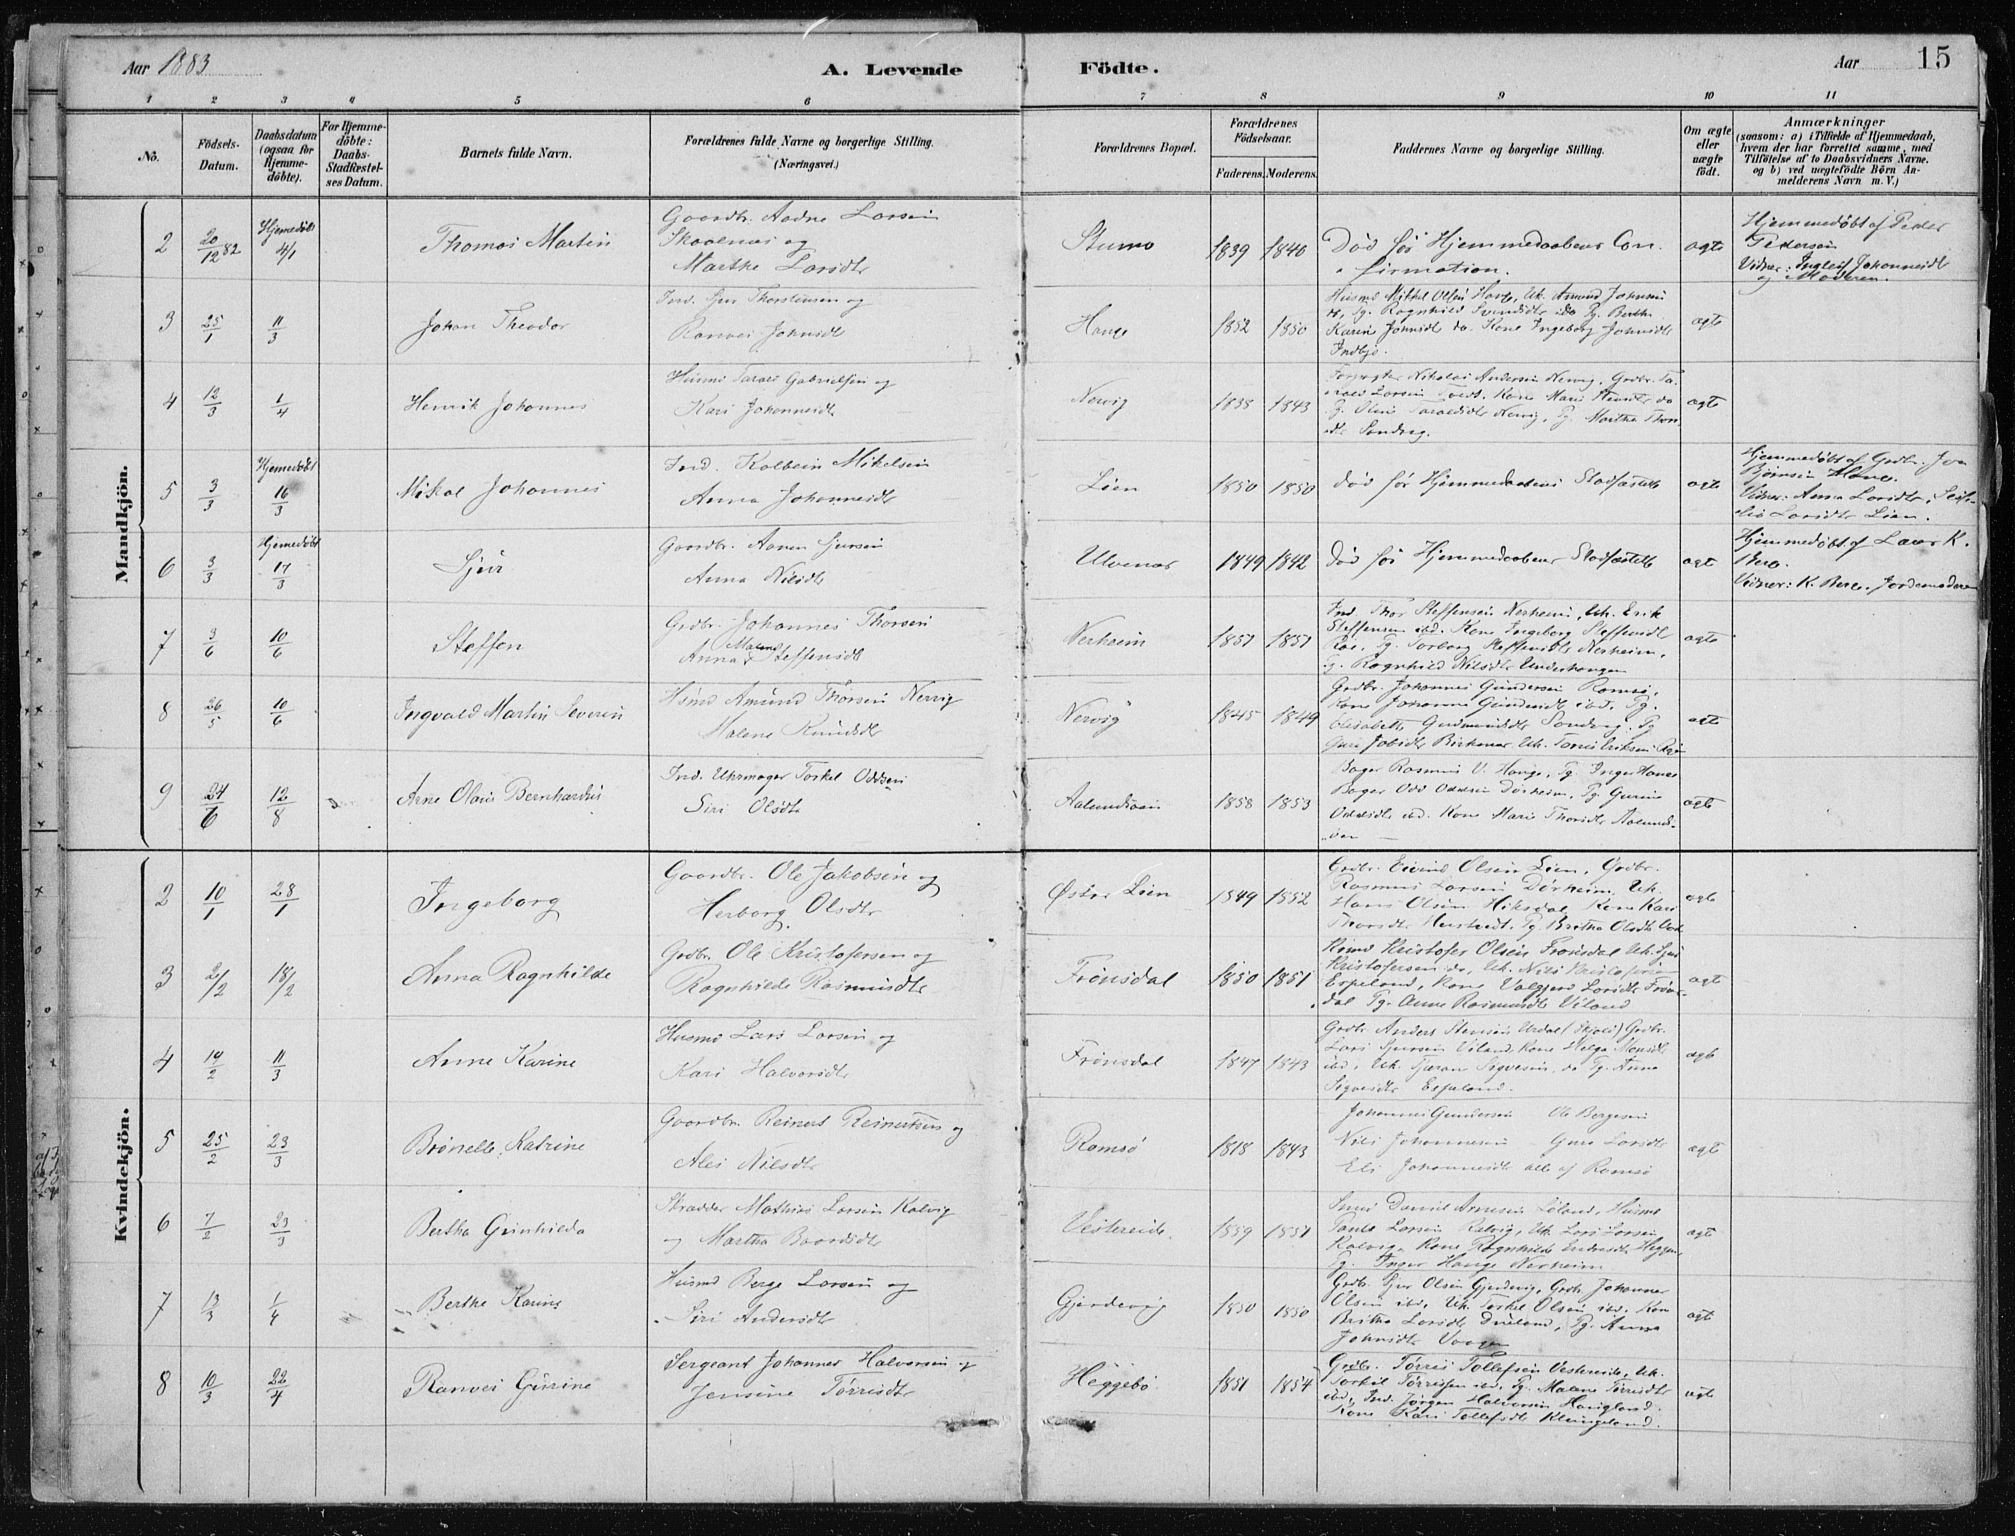 Aar 1883
A. Levende Födte.
Aar 15
1 2 3 4 5 6 7 8 9 10 11
No.
Födsels-
Datum.
Daabsdatum
(ogsaa for
Hjemme-
döbte).
For Hjemme-
döbte:
Daabs-
Stadfæstel-
ses Datum.
Barnets fulde Navn.
Forældrenes fulde Navne og borgerlige Stilling.
(Næringsvei.)
Forældrenes Bopæl.
Forældrenes
Födselsaar.
Faderens. Moderens.
Faddernes Navne og borgerlige Stilling.
Om ægte
eller
uægte
födt.
Anmærkninger
(saasom: a) i Tilfælde af Hjemmedaab,
hvem der har forrettet samme, med
Tilföielse af to Daabsvidners Navne.
og b) ved uægtefödte Börn An-
melderens Navn m. V.)
Mandkjön.
2 20/12 82 Hjemedøbt 4/1 Thomas Martin
Gaardbr. Aadne Larsen
Skaalnes og
Marthe Larsdtr
Stumo 1839 1840
Død før Hjemmedaabens Con-
firmation.
ægte
Hjemmedøbt af Peder
Pedersen
Vidner: Johannesdt
og Moderen.
3 25/1 11/3 Johan Theodor
Ind. Sjur Thorstensen og
Ranvei Johnsdt
Hauge 1852 1850
Husmd Mikkel Olsen Hauge, Uk. Amund Johnsen
do, Pg. Ragnhild Svendsdt ibd Pg. Berthe
Karine Johnsdt do. Kone Ingeborg Johnsdt
Indbjo.
ægte
4 12/3 1/4 Henrik Johannes
Husmd Gabrielsen og
Kari Johannesdt
Nervig 1838 1843
Nikolai Andersen Nervig, Grdbr. Ta-
rald Larsen Kone Mari do
Pg. Olene Taraldsdtr Nervig, Pg. Martha Thor
sdtr Sandvig.
ægte
5 3/3 Hjemedøbt 16/3 Mikal Johannes
Ind. Kolbein Mikelsen
Anna Johannesdt
Lien 1850 1850
Død før Hjemmedaabens Stadfæstelse
ægte
Hjemmedøbt af Grdbr. Iva
Bjørnsen
Vidner: Anna Larsdtr,
Larsdtr Lien.
6 3/3 Hjemedøbt 17/3 Sjur
Gaardbr. Aanen Sjursen
Anna Nilsdt
Ulvenes 1849 1842
Død før Hjemmedaabens Stadfæstelse
ægte
Hjemmedøbt af Laur K.
Berg.
Vidner: K. Berg. Jordemoderen
7 3/6 10/6 Steffen
Grdbr. Johannes Thorsen
Anna Malene Steffensdt
Nerheim 1851 1851
Ind. Thor Steffensen Nerheim, Uk. Erik
Steffensen ibd. Kone Ingeborg Steffensdt
Roe, Pg. Torborg Steffensdt Nerheim,
Pg. Ragnhild Nilsdtr Underhaugen
ægte
8 26/5 10/6 Ingvald Martin Severin
Husmd Amund Thorsen Nervig
Malene Knudsdt
Nervig 1845 1849
Grdbr. Johannes Gundersen Romsø,
Kone Johanna Gundersdt ibd, Pg.
Elisabeth Gudmundsdt Sandvig, Pg
Guri Jobsdtr Birkenes, Uk. Eriksen
ægte
9 24/6 12/8 Arne Olaus Bernhardus
Ind. Uhrmager Torkel Oddsen
Siri Olsdtr
Aalundsøen 1858 1853
Bager Rasmus V. Hauge, Pg. Inger Hauge
Bager Odd Oddsen Dörheim, Pg. Gurine
Oddsdt ibd. Kone Mari Thorsdtr Aalunds-
øen
ægte
Kvindekjön.
2 10/1 28/1 Ingeborg
Gaardbr. Ole Jakobsen og
Herborg Olsdtr
Øster Lien 1849 1852
Grdbr. Eivind Olsen Lien, Grdbr.
Rasmus Larsen Dörheim, Uk.
Hans Olsen Hiksdal, Kone Kari
Thorsdtr Pg. Britha Olsdtr
ægte
3 2/2 18/2 Anna Ragnhilde
Grdbr. Ole Kristofersen og
Ragnhilde Rasmusdtr
Frønsdal 1850 1851
Husmd Kristofer Olsen Frønsdal Uk. Sjur
Kristofersen do, Uk. Nils Kristofersen
Espeland, Kone Valgjerd Larsdtr Frøns-
dal Pg. Anne Rasmusdtr Viland
ægte
4 14/2 11/3 Anne Karine
Husmd Lars Larsen og
Kari Halvorsdtr
Frønsdal 1847 1843
Grdbr. Anders Stensen Urdal (Skjold) Grdbr.
Lars Sjursen Viland, Kone Helga Monsdtr
ibd, Uk. Tjæran Sigvesen, do Pg. Anna
Sigvesdtr Espeland.
ægte
5 25/2 23/3 Brønelle Katrine
Gaardbr. Reinert Reinertsen og
Ales Nilsdtr
Romsø 1818 1843
Johannes Gundersen Ole Bergesen
Nils Johannesen Guro Larsdt
Eli Johannesdt alle af Romsø
ægte
6 7/2 23/3 Bertha Gunhilda
Skrædder Mathias Larsen Kalvig
og Martha Baardsdtr
Vestereide. 1859 1851
Daniel Arnesen Løland, Husmd
Larsen Kalvig, Uk. Lars Larsen
Kalvig, Kone Ragnhilde Endresdt
Pg. Inger Hauge Nerheim
ægte
7 13/3 1/4 Berthe Karine
Husmd Berge Larsen og
Siri Andersdt
Gjerdevig 1850 1850
Grdbr. Sjur Olsen Gjerdevig, Grdbr Johannes
Olsen ibd, Uk. Torkel Olsen ibd, Kone
Britha Larsdt Pg. Anna
Johnsdtr Vaagen
ægt
8 10/3 22/4 Ranvei Gurine
Sergeant Johannes Halvorsen og
Jensine Tørrisdtr
Heggebø 1851 1854
Grdbr. Tørris Tollefsen Vestereide, Uk.
Torkil Tørrisen ibd, Pg. Malene Tørrisdtr
ibd, Ind. Jørgen Halvorsen Haugland.
Kone Kari Tollefsdt Klungeland.
ægte